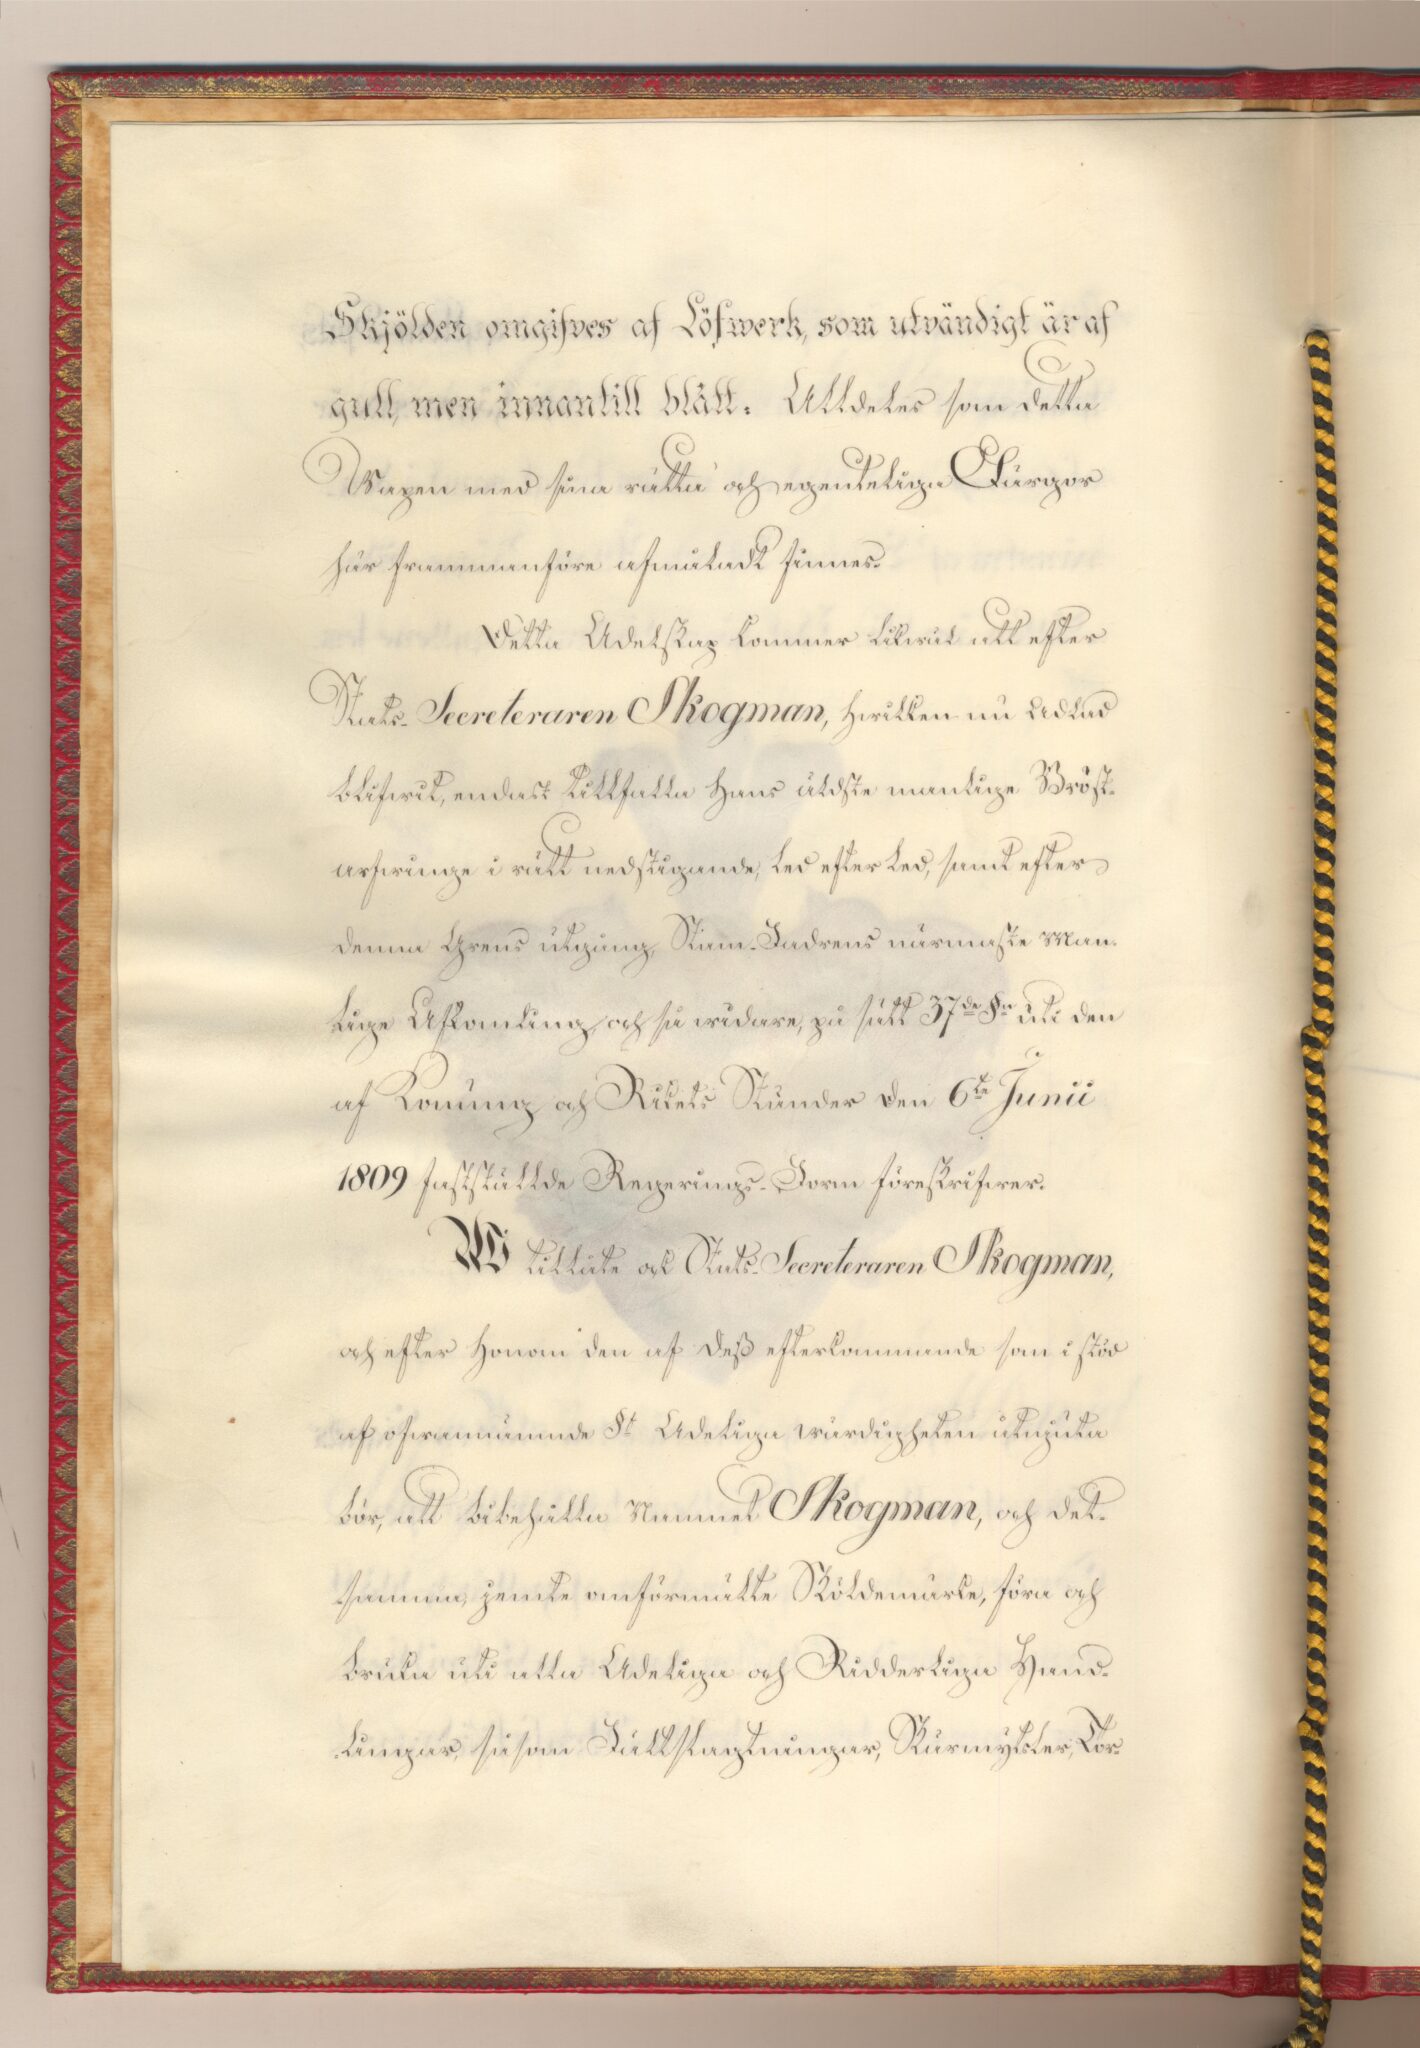 Skjölden omgifves af Löfwerk, som utvändigt är af
gull, men innantill blått. Alldeles som detta
Wapen med sina rätta och egenteliga Färgor
här frammanföre afmåladt finnes.
Detta Adelskap kommer likwäl att efter
Stats-Secreteraren Skogman, hwilken nu adlad
blifwit, endast tillfalla Hans äldste manlige Bröst-
arfwinge i rätt nedstigande, led efter led, samt efter
denna Grens utgång, Stam-Fadrens närmaste Man-
lige Afkomling, och så widare, på sätt 37de §n uti den
af Konung och Rikets Ständer den 6te Junii
1809 fastställde Regerings-Form föreskrifwer.
Wi tillåte ock Stats-Secreteraren Skogman,
och efter Honom den af Deß efterkommande som i stöd
af ofwannämnde §t Adeliga wärdigheten åtnjuta
bör, att bibehålla Namnet Skogman, och det-
samma, jemte omförmälte Sköldemärke, föra och
bruka uti alla Adeliga och Ridderliga Hand-
lingar, såsom Fältslagtningar, Skärmytsler, Tor-